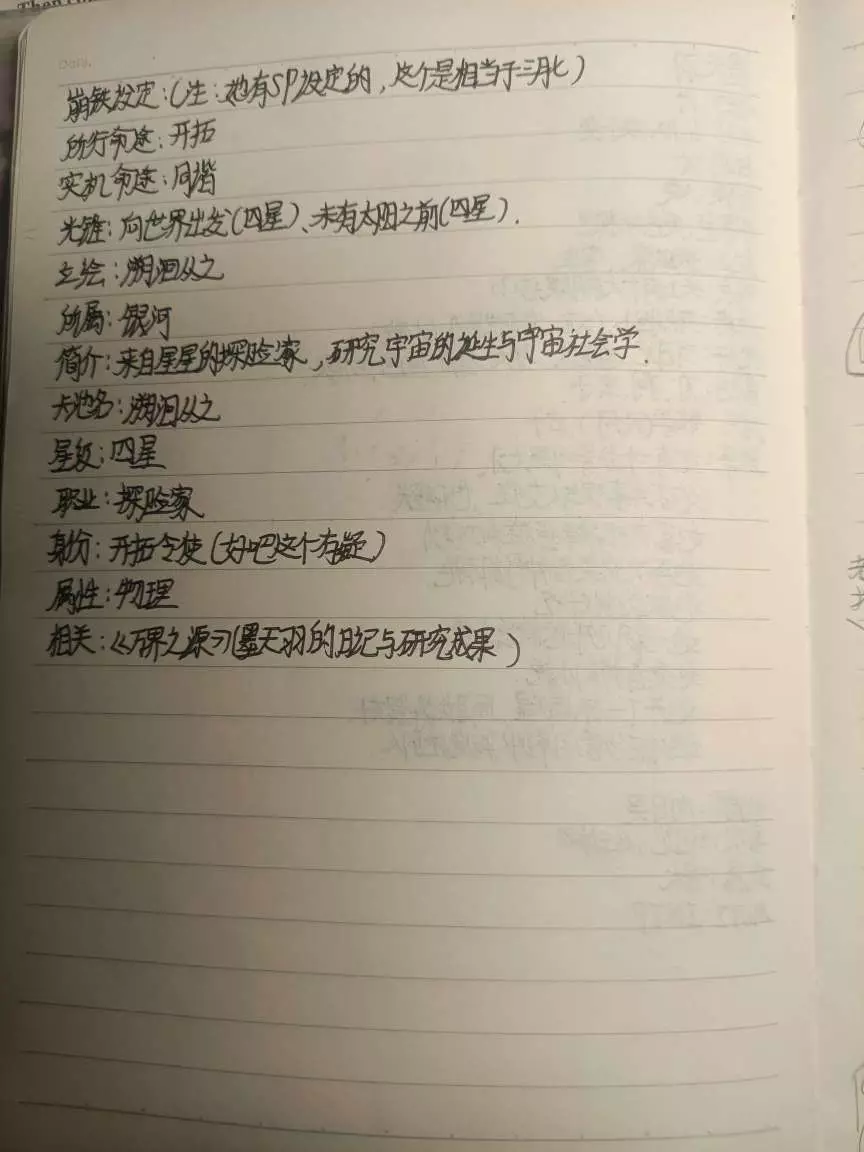 崩铁设定:(注:她有SP设定的,这个是相当于三月七)
所行命途:开拓
实机命途:同谐
光锥:向世界出发(四星)、未有太阳之前(四星).
立绘:溯洄从之
所属:银河
简介:来自星星的探险家,研究宇宙的诞生与宇宙社会学.
卡池名:溯洄从之
星级:四星
职业:探险家
身份:开拓令使(好吧这个存疑)
属性:物理
相关:《万界之源》(墨天羽的日记与研究成果)